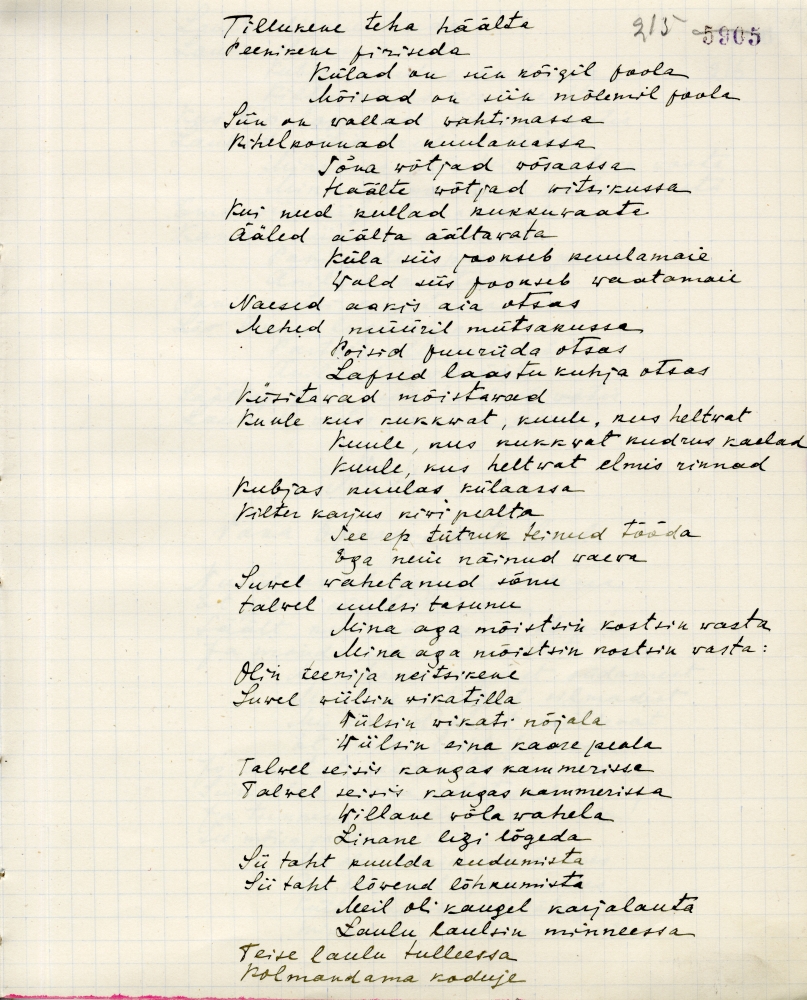 215 5905
Tillukene teha häälta
Peenikene piriseda
Külad on siin kõigil poola
Mõisad on siin mõlemil poola
Siin on wallad wahtimassa
Kihelkonnad kuulamassa
Sõna wõtjad wõsaassa
Häälte wõtjad witsikussa
Kui need kullad kukkuwaate
Ääled äälta äältawata
Küla siis jookseb kuulamaie
Wald siis jooksеb waatamaie
Naesed aakis aia otsas
Mehed müüril mütsakussa
Poisid puuriida otsas
Lapsed laastukuhja otsas
Küsitawad mõistawad
Kuule kus kukkwat, kuule, kus heltwat
Kuule, kus kukkwat kudrus kaelad
Kuule, kus heltwat elmis rinnad
Kubjas kuulas külaassa
Kilter karjus kiwi pealta
See ep tütruk teinud tööda
Ega neiu näinud waewa
Suwel wahetanud sõnu
talwel uulesi tasunu
Mina aga mõistsin kostsin wasta
Mina aga mõistsin kostsin wasta:
Olin teenija neitsikene
Suwel wiilsin wikatilla
Wiilsin wikati nõjala
Wiilsin eina kaare peala
Talwel seisis kangas kammerissa
Talwel seisis kangas kammerissa
Willane wõla wahela
Linane ligi lõgeda
Sii taht kuulda kudumista
Sii taht lõwend lõhkumista
Meil oli kaugel karjalauta
Laulu laulsin minneessa
Teise laulu tulleessa
Kolmandama koduje